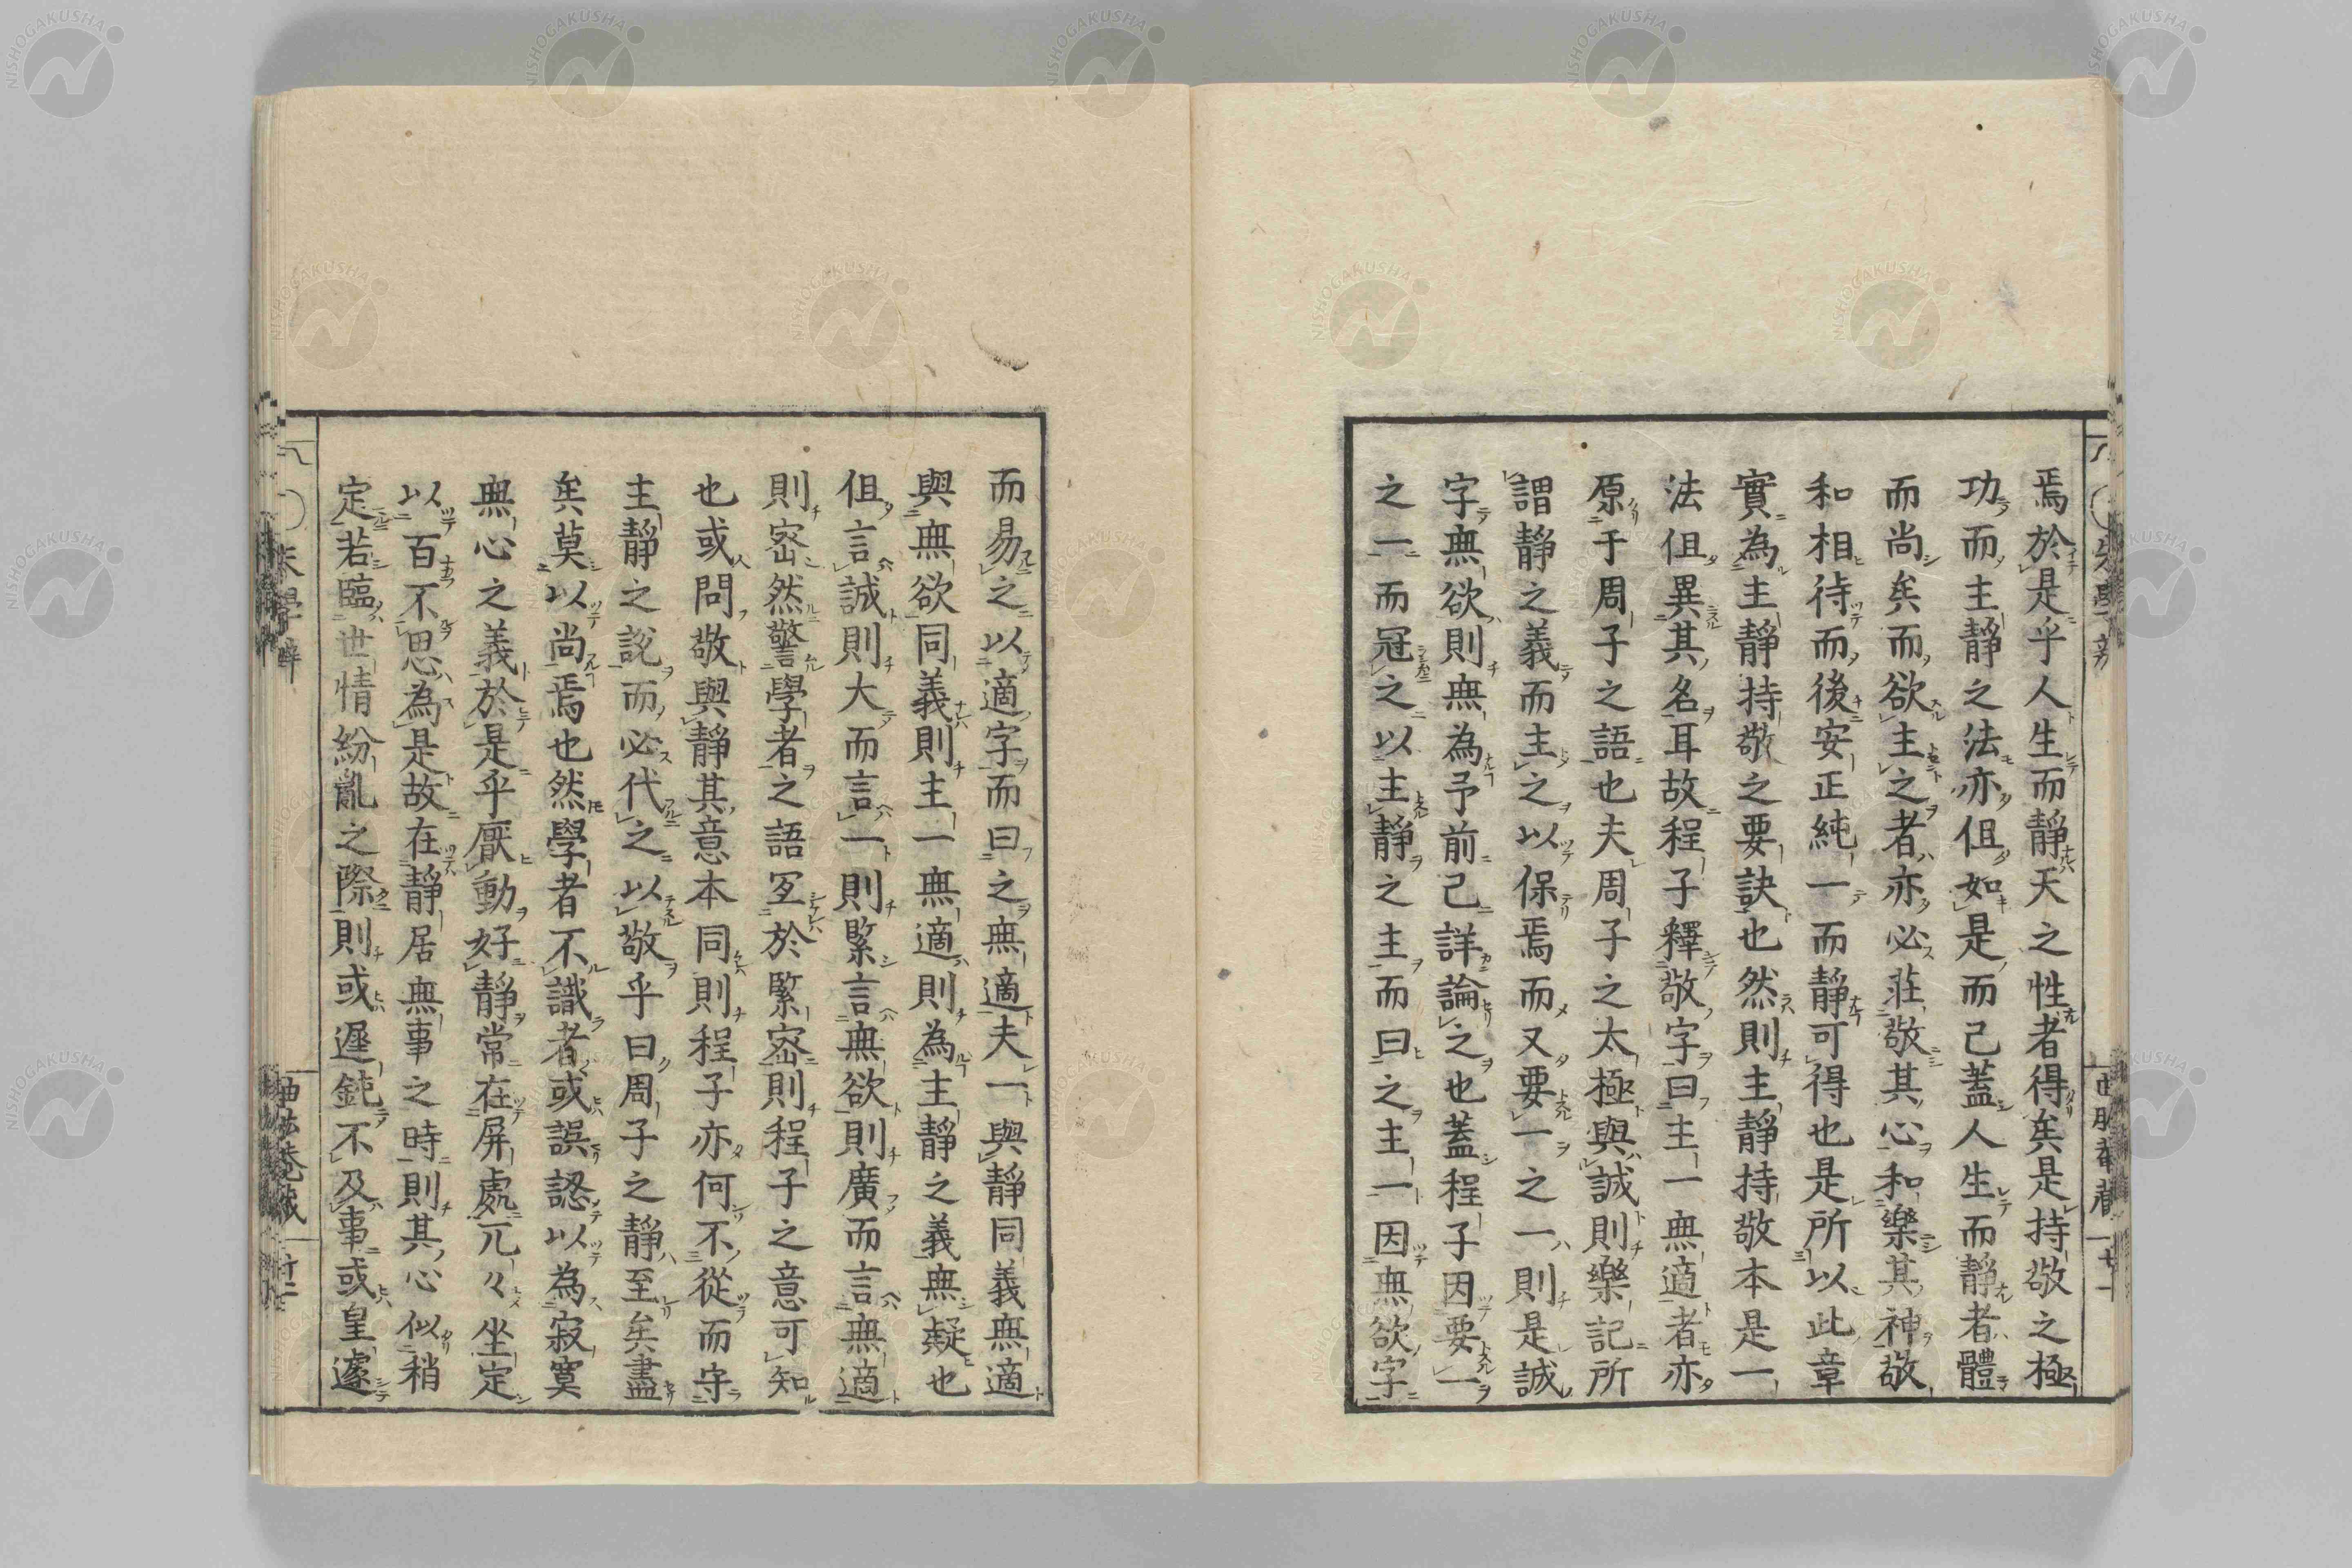 焉於是乎人生而靜天之性者得矣是持敬之極
功而主靜之法亦但如是而已蓋人生而靜者體
而尚矣而欲主之者亦必莊敬其心和樂其神敬
和相待而後安正純一而靜可得也是所以此章
實為主靜持敬之要訣也然則主靜持敬本是一
法但異其名耳故程子釋敬字曰主一無適者亦
原于周子之語也夫周子之太極與誠則樂記所
謂靜之義而主之以保焉而又要一之一則是誠
字無欲則無為予前已詳論之也蓋程子因要一
之一而冠之以主靜之主而曰之主一因無欲字
而易之以適字而曰之無適夫一與靜同義無適
與無欲同義則主一無適則為主靜之義無疑也
但言誠則大而言一則緊言無欲則廣而言無適
則密然警學者之語宜於緊密則程子之意可知
也或問敬與靜其意本同則程子亦何不從而守
主靜之說而必代之以敬乎曰周子之靜至矣盡
矣莫以尚焉也然學者不識者或誤認以為寂寞
無心之義於是乎厭動好靜常在屏處兀々坐定
以百不思為是故在靜居無事之時則其心似稍
定若臨世情紛亂之際則或遲鈍不及事或皇遽
NISHOGAKUSHA